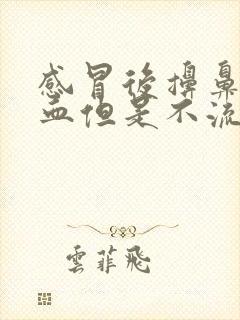 感冒後擤鼻
血但是不流
雲菲飛